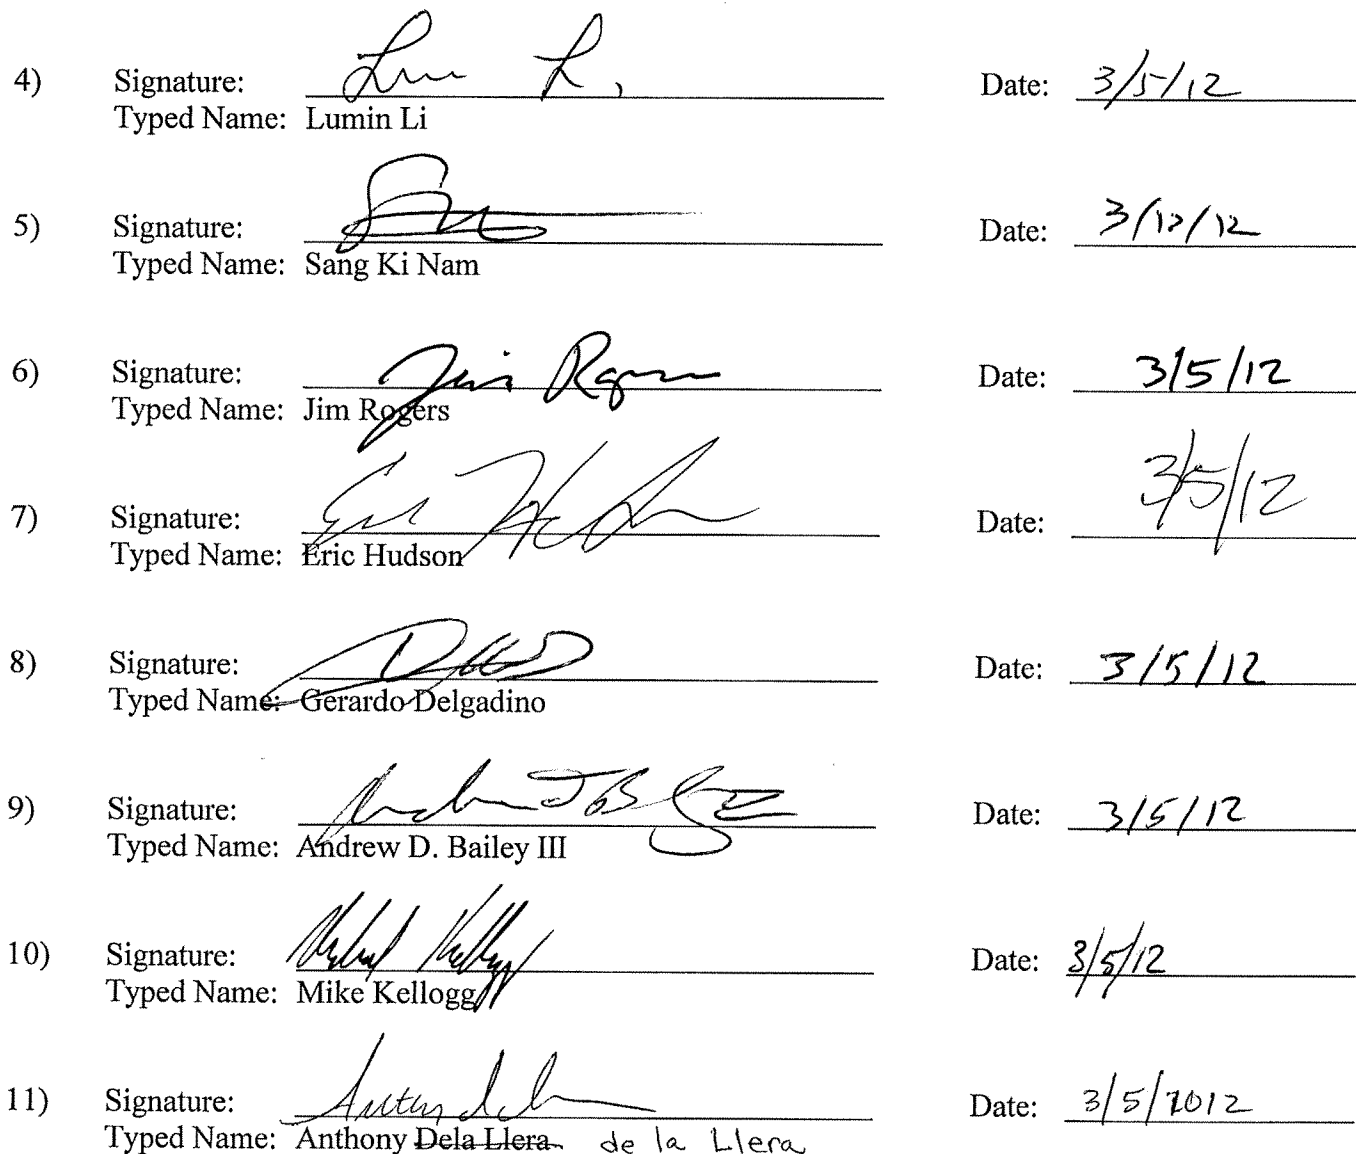 4) Signature: Lumin Li Date: 3/5/12
Typed Name: Lumin Li
5) Signature: Date: 3/12/12
Typed Name: Sang Ki Nam
6) Signature: Jim Rogers Date: 3/5/12
Typed Name: Jim Rogers
7) Signature: Eric Hudson Date: 3/5/12
Typed Name: Eric Hudson
8) Signature: Date: 3/5/12
Typed Name: Gerardo Delgadino
9) Signature: Date: 3/5/12
Typed Name: Andrew D. Bailey III
10) Signature: Michael Kellogg Date: 3/5/12
Typed Name: Mike Kellogg
11) Signature: Date: 3/5/2012
Typed Name: Anthony Dela Llera de la Llera